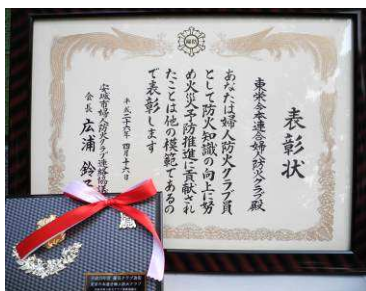 表彰状
婦人防火クラブ殿
あなたは婦人防火クラブ員
として防火知識の向上に努
め火災予防推進に貢献され
たことは他の模範であるの
で表彰します
平成二十六年 四月十六日
安城市婦人防火クラブ連絡協議
会長 広浦 鈴